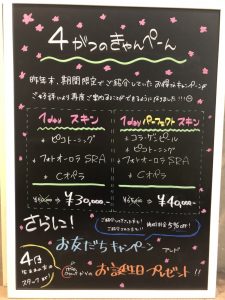 4がつのきゃんぺーん
昨年末、期間限定でご紹介していたお得なキャンペーンが
ご好評により再度ご案内することができるようになりました!!!
1day スキン
・ピコトーニング
+
フォトオーロラ SRA
+
Cオパラ
¥30,000-
1day パーフェクト スキン
・コラーゲンピール
+ピコトーニング
+フォトオーロラ SRA
+Cオパラ
¥40,000-
さらに!
お友だちキャンペーン アンド
4月
お誕生日プレゼント!!